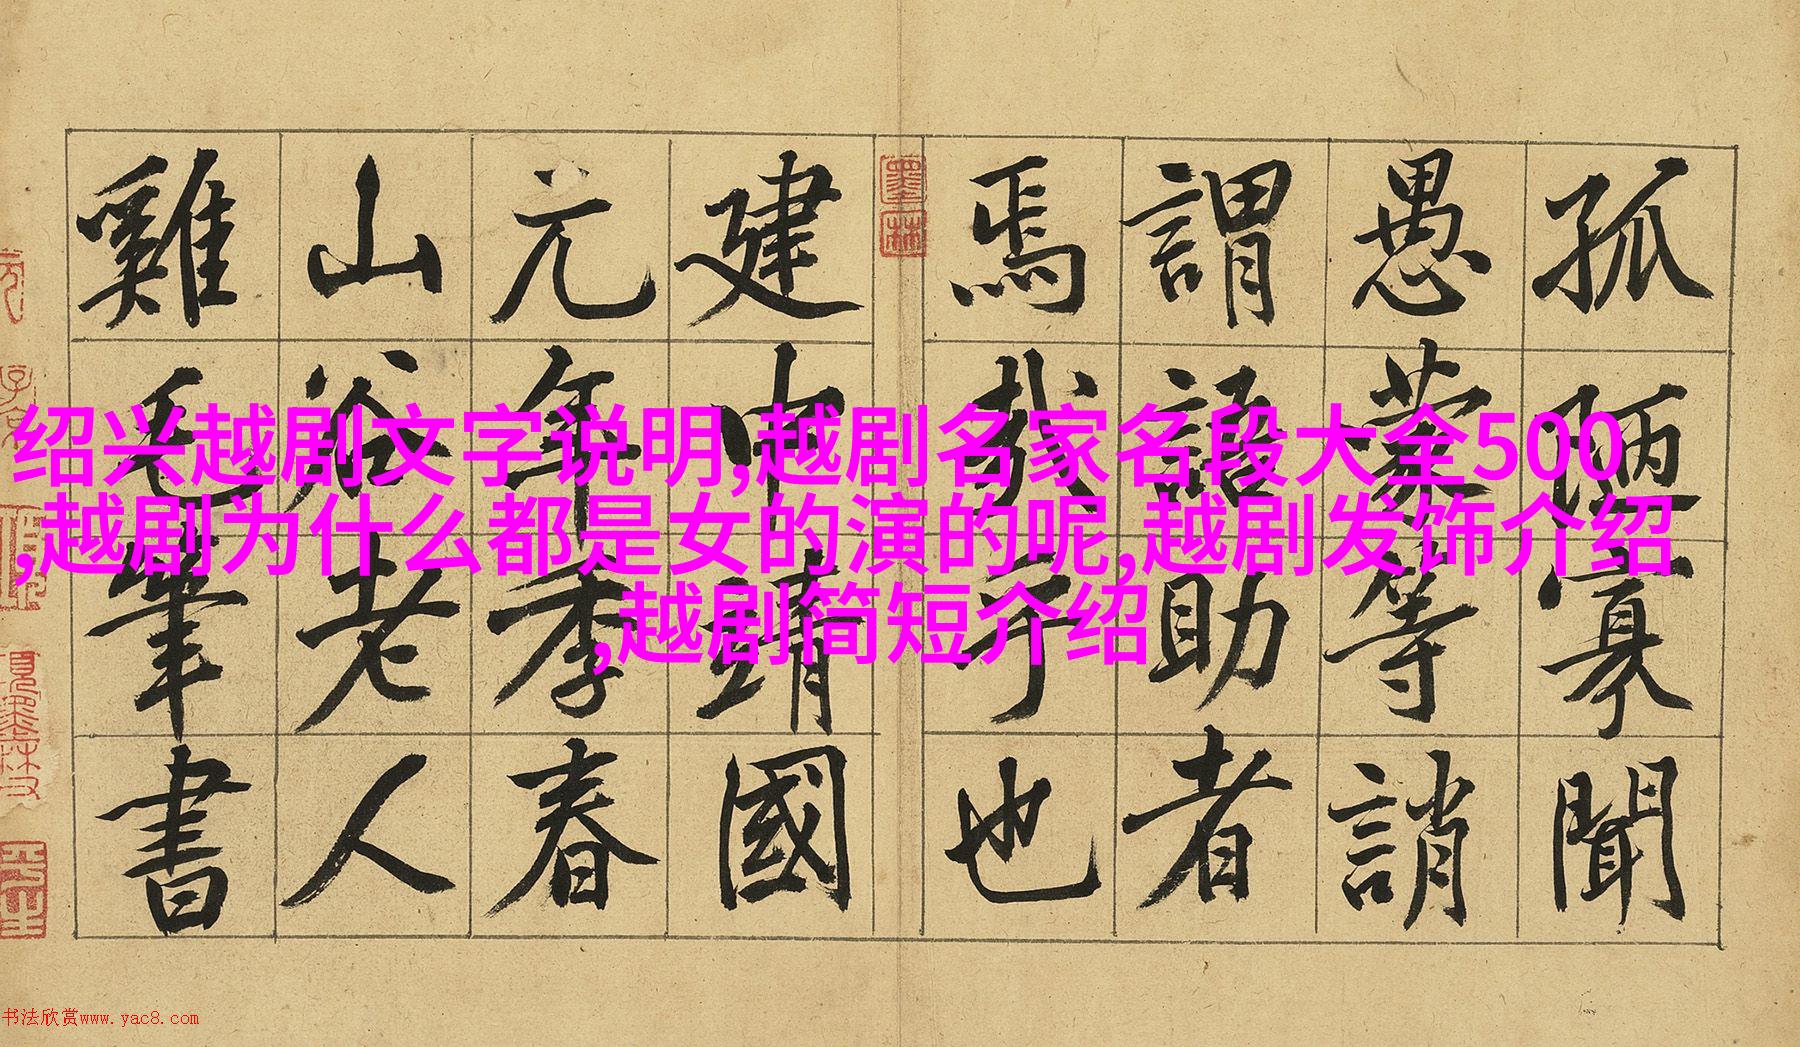 孤陋寡聞
愚蒙等誚
謂語助者
焉哉乎也
建中靖國
元年季春
山谷老人
雞毛筆書
绍兴越剧文字说明,越剧名家名段大全500
,越剧为什么都是女的演的呢,越剧发饰介绍
,越剧简短介绍
墨林
书法欣赏www.yac8.com